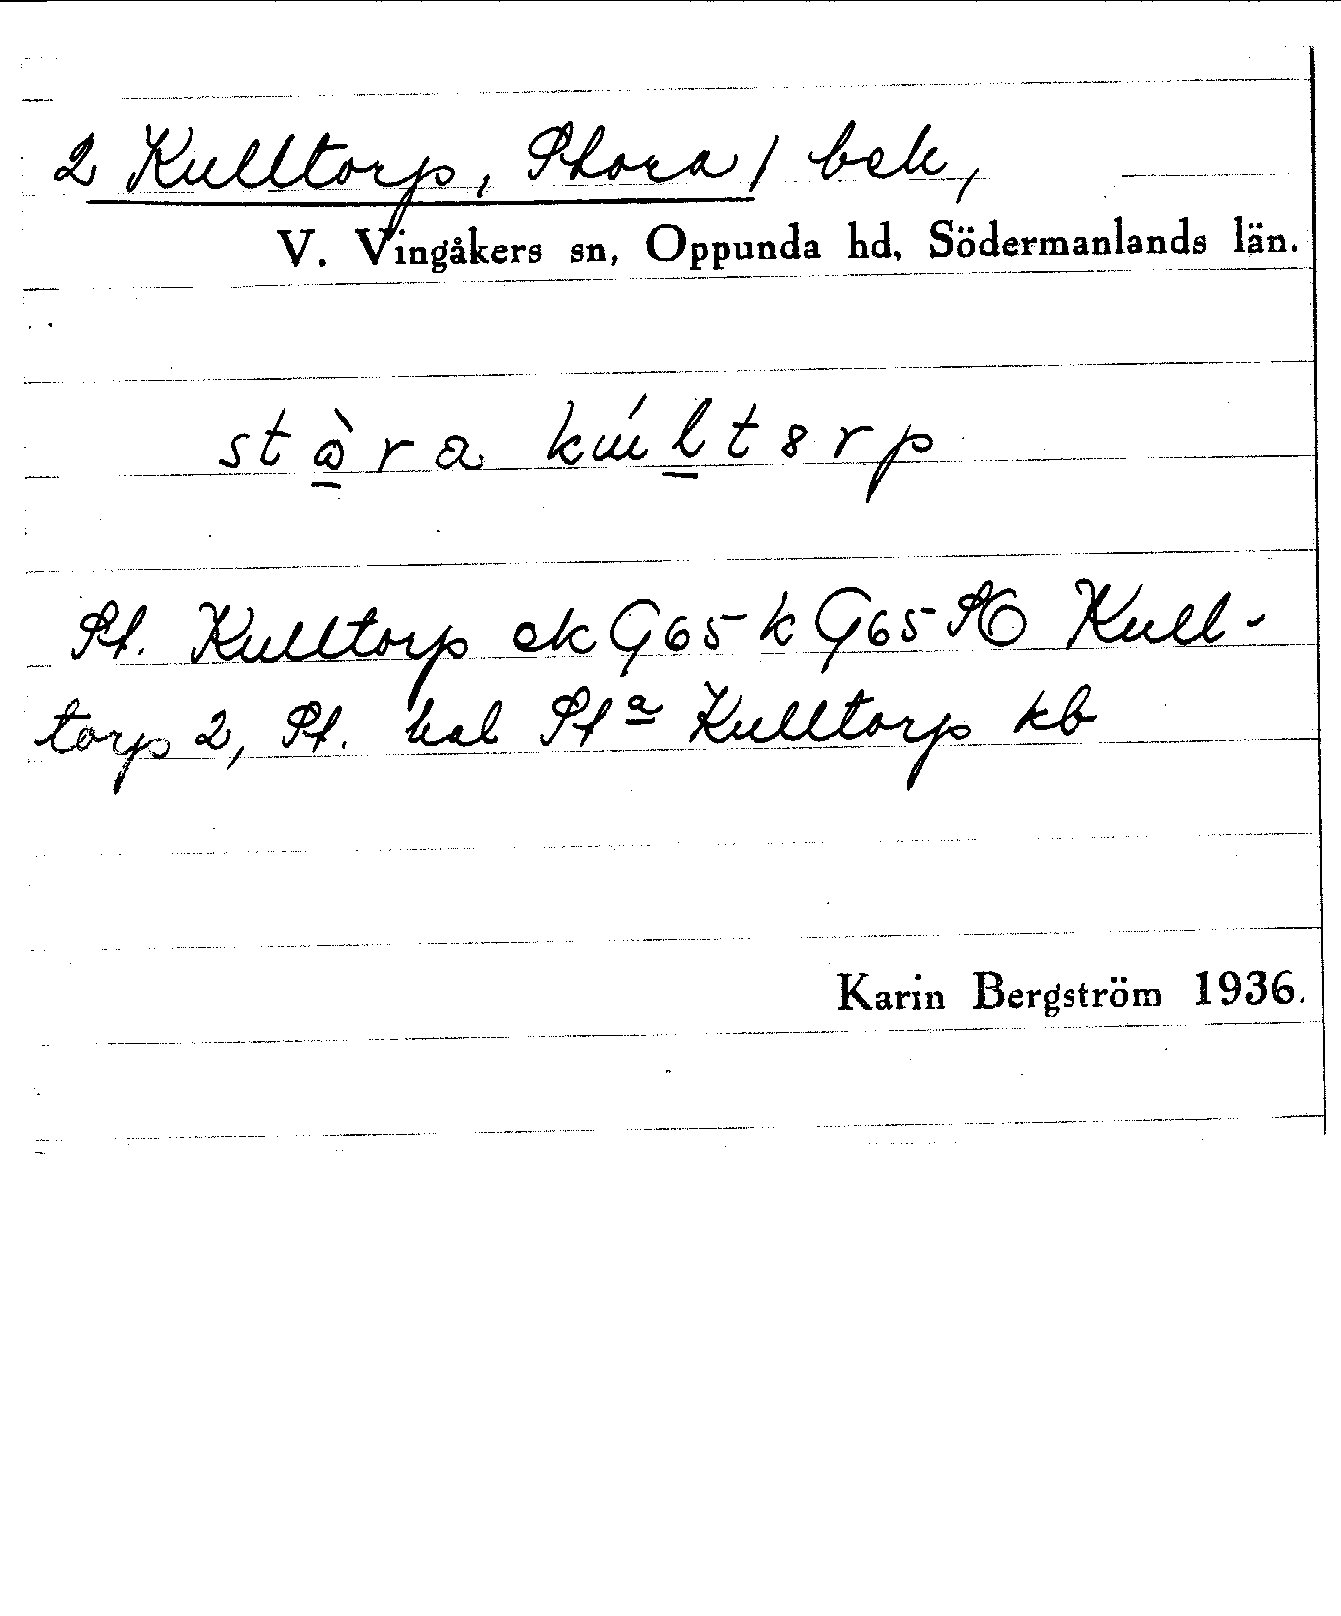 2 Kulltorp, Stora / bek,
V. Vingåkers sn, Oppunda hd, Södermanlands län.
stòra kúltorp
St. Kulltorp ek G65 k G65 SO Kull-
torp 2, St. hal St a Kulltorp kb
Karin Bergström 1936.